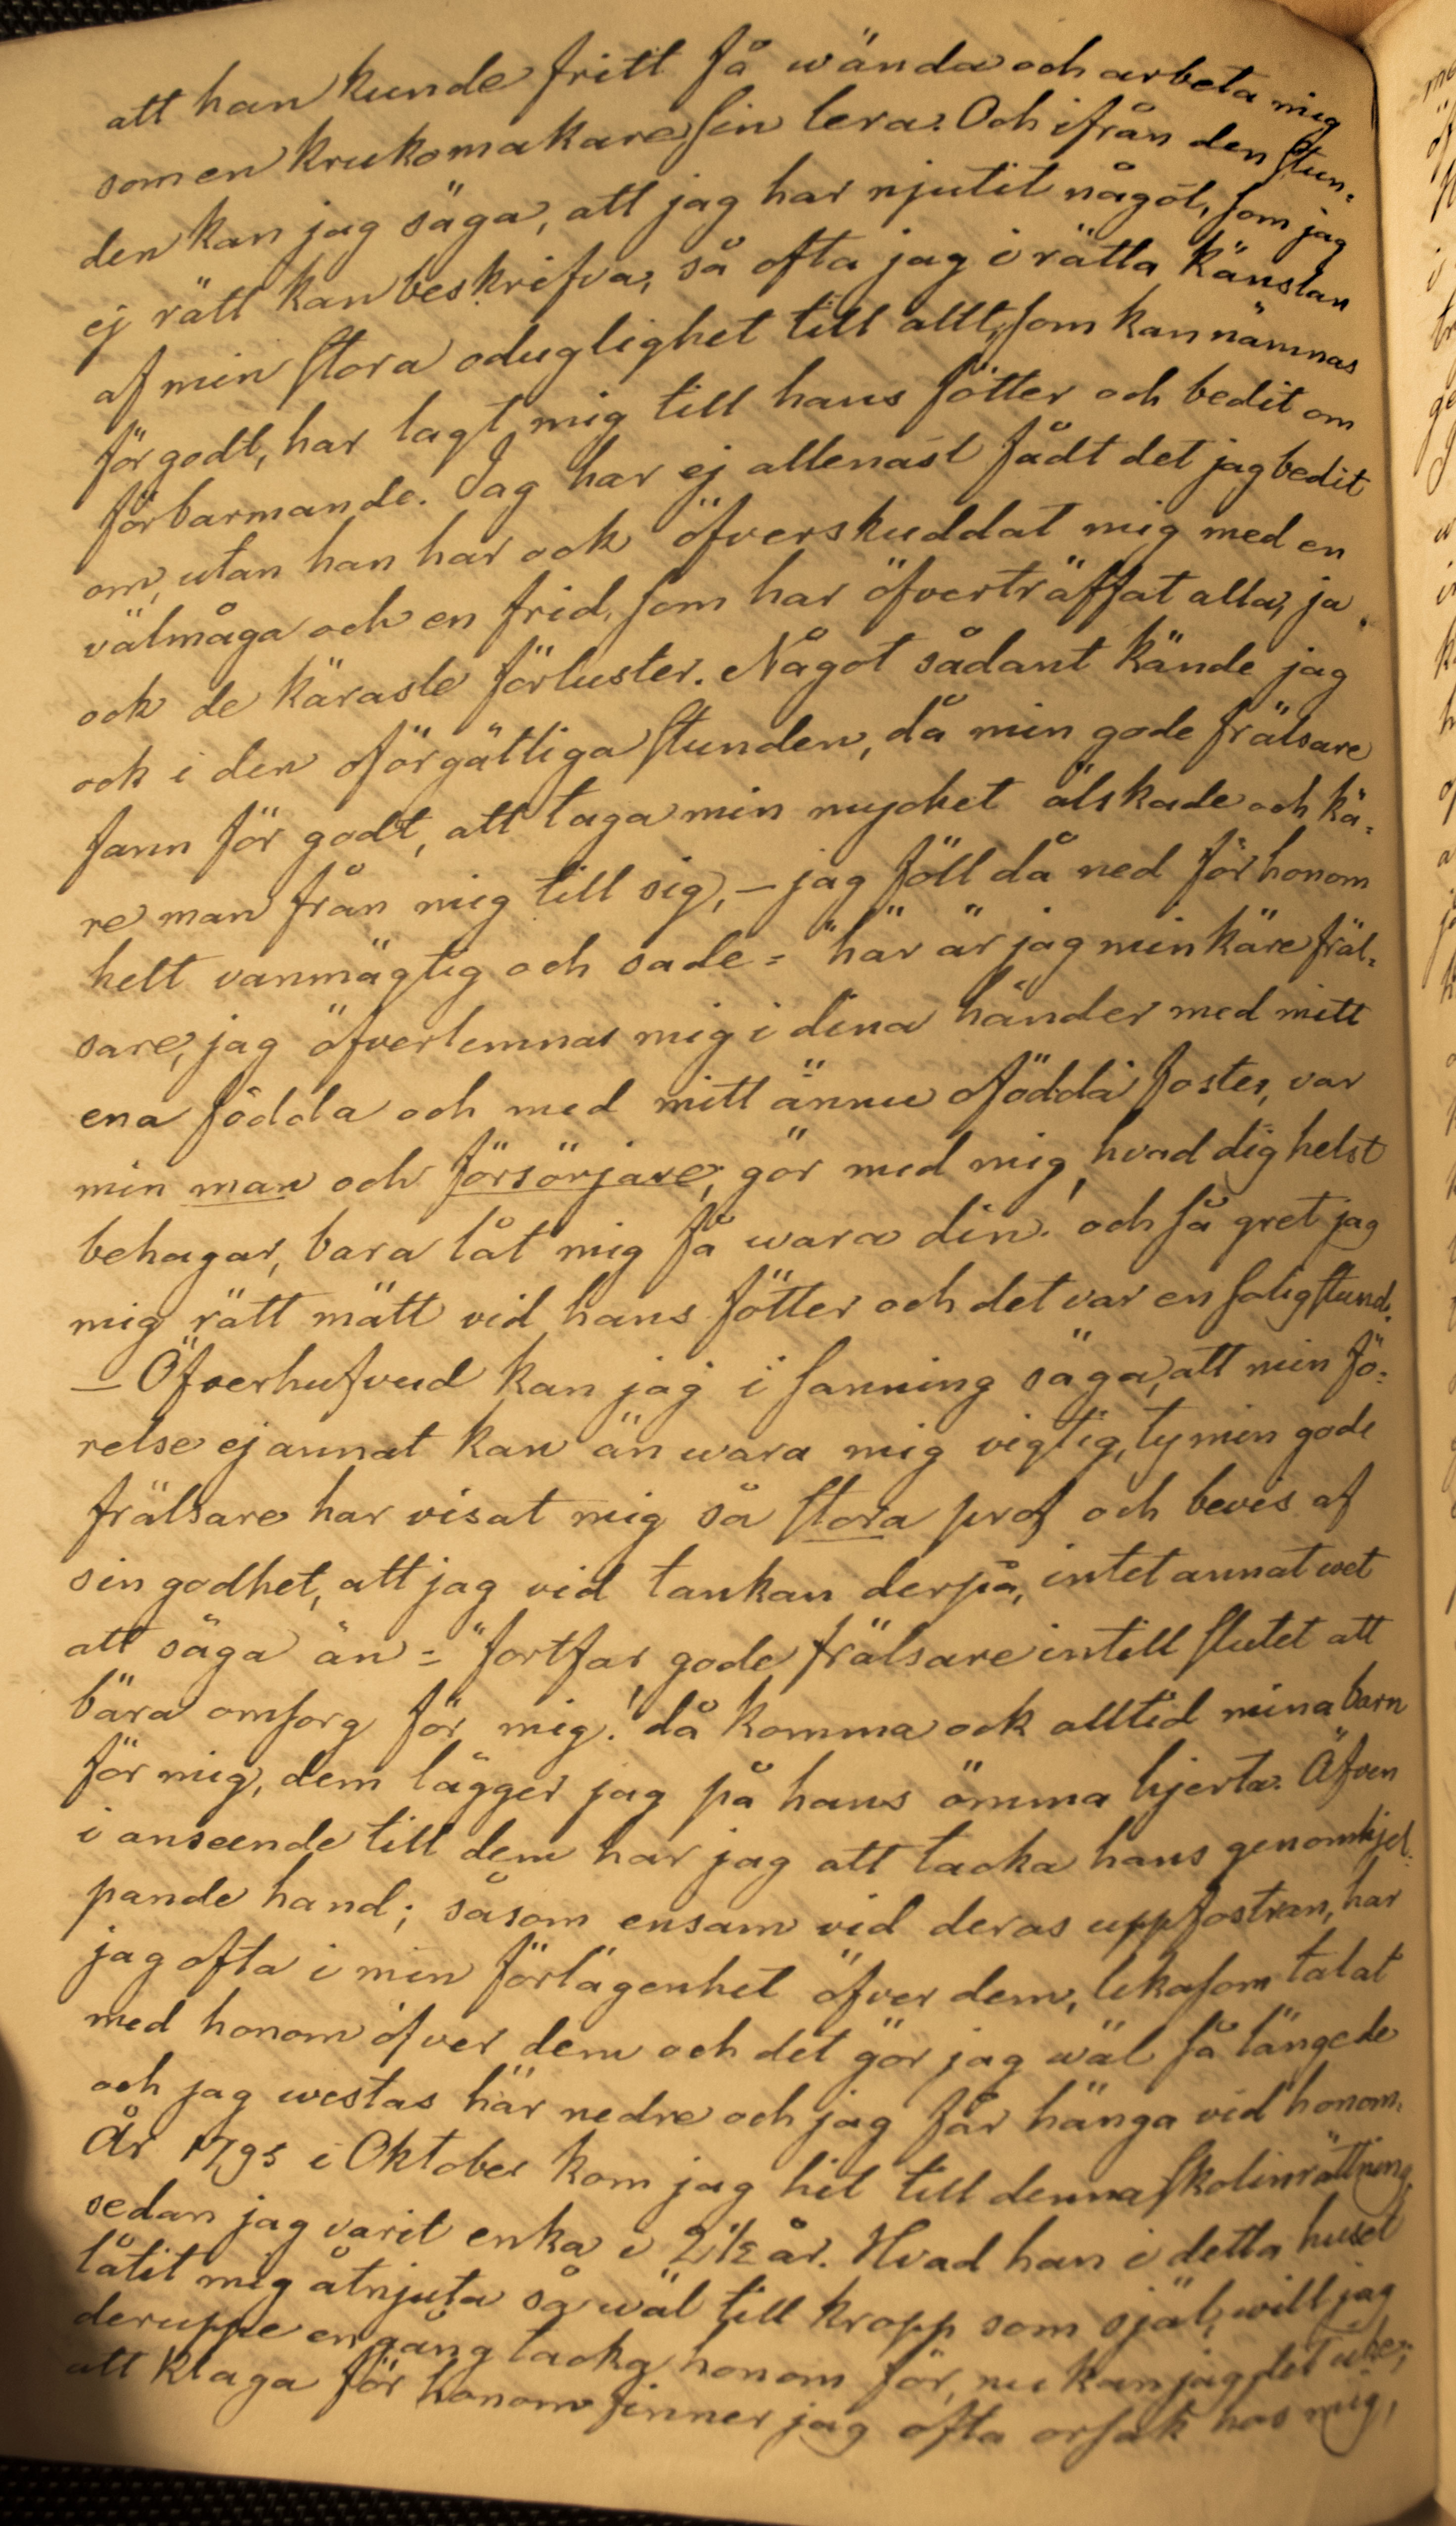 att han kunde fritt få wända och arbeta mig
som en krukomakare sin lera. Och ifrån den stun-
den kan jag säga, att jag har njutit något, som jag
ej rätt kan beskrifva, så ofta jag i rätta känslan
af min stora oduglighet till allt, som kan nämnas
för godt, har lagt mig till hans fötter och bedit om
förbarmande. Jag har ej allenast fådt det jag bedit
om, utan han har ock öfverskuddat mig med en
välmåga och en frid, som har öfverträffat alla, ja
ock de käraste förluster. Något sådant kände jag
ock i den oförgätliga stunden, då min gode frälsare
fann för godt, att taga min mycket älskade och kä-
re man från mig till sig, – jag föll då ned för honom
helt vanmägtig och sade = "här är jag min käre fräl-
sare, jag öfverlemnar mig i dina händer med mitt
ena födda och med mitt ännu ofödda foster, var
min man och försörjare, gör med mig, hvad dig helst
behagar, bara låt mig få wara din. och så gret jag
mig rätt mätt vid hans fötter och det var en salig stund.
– Öfverhufvud kan jag i sanning säga, att min fö-
relse ej annat kan än wara mig vigtig, ty min gode
frälsare har visat mig så stora prof och bevis af
sin godhet, att jag vid tankan derpå, intet annat wet
att säga än = "fortfar, gode frälsare intill slutet att
bära omsorg för mig! då komma ock alltid mina barn
för mig, dem lägger jag på hans ömma hjerta. Äfven
i anseende till dem har jag att tacka hans genomhjel-
pande hand; såsom ensam vid deras uppfostran, har
jag ofta i min förlägenhet öfver dem, likasom talat
med honom öfver dem och det gör jag wäl så länge de
och jag westas här nedre och jag får hänga vid honom.
År 1795 i Oktober kom jag hit till denna skolinrättning,
sedan jag varit enka i 2 1/2 år. Hvad han i detta huset
låtit mig åtnjuta så wäl till kropp som själ, will jag
deruppe en gång tacka honom för, nu kan jag det icke;
att klaga för honom finner jag ofta orsak hos mig,